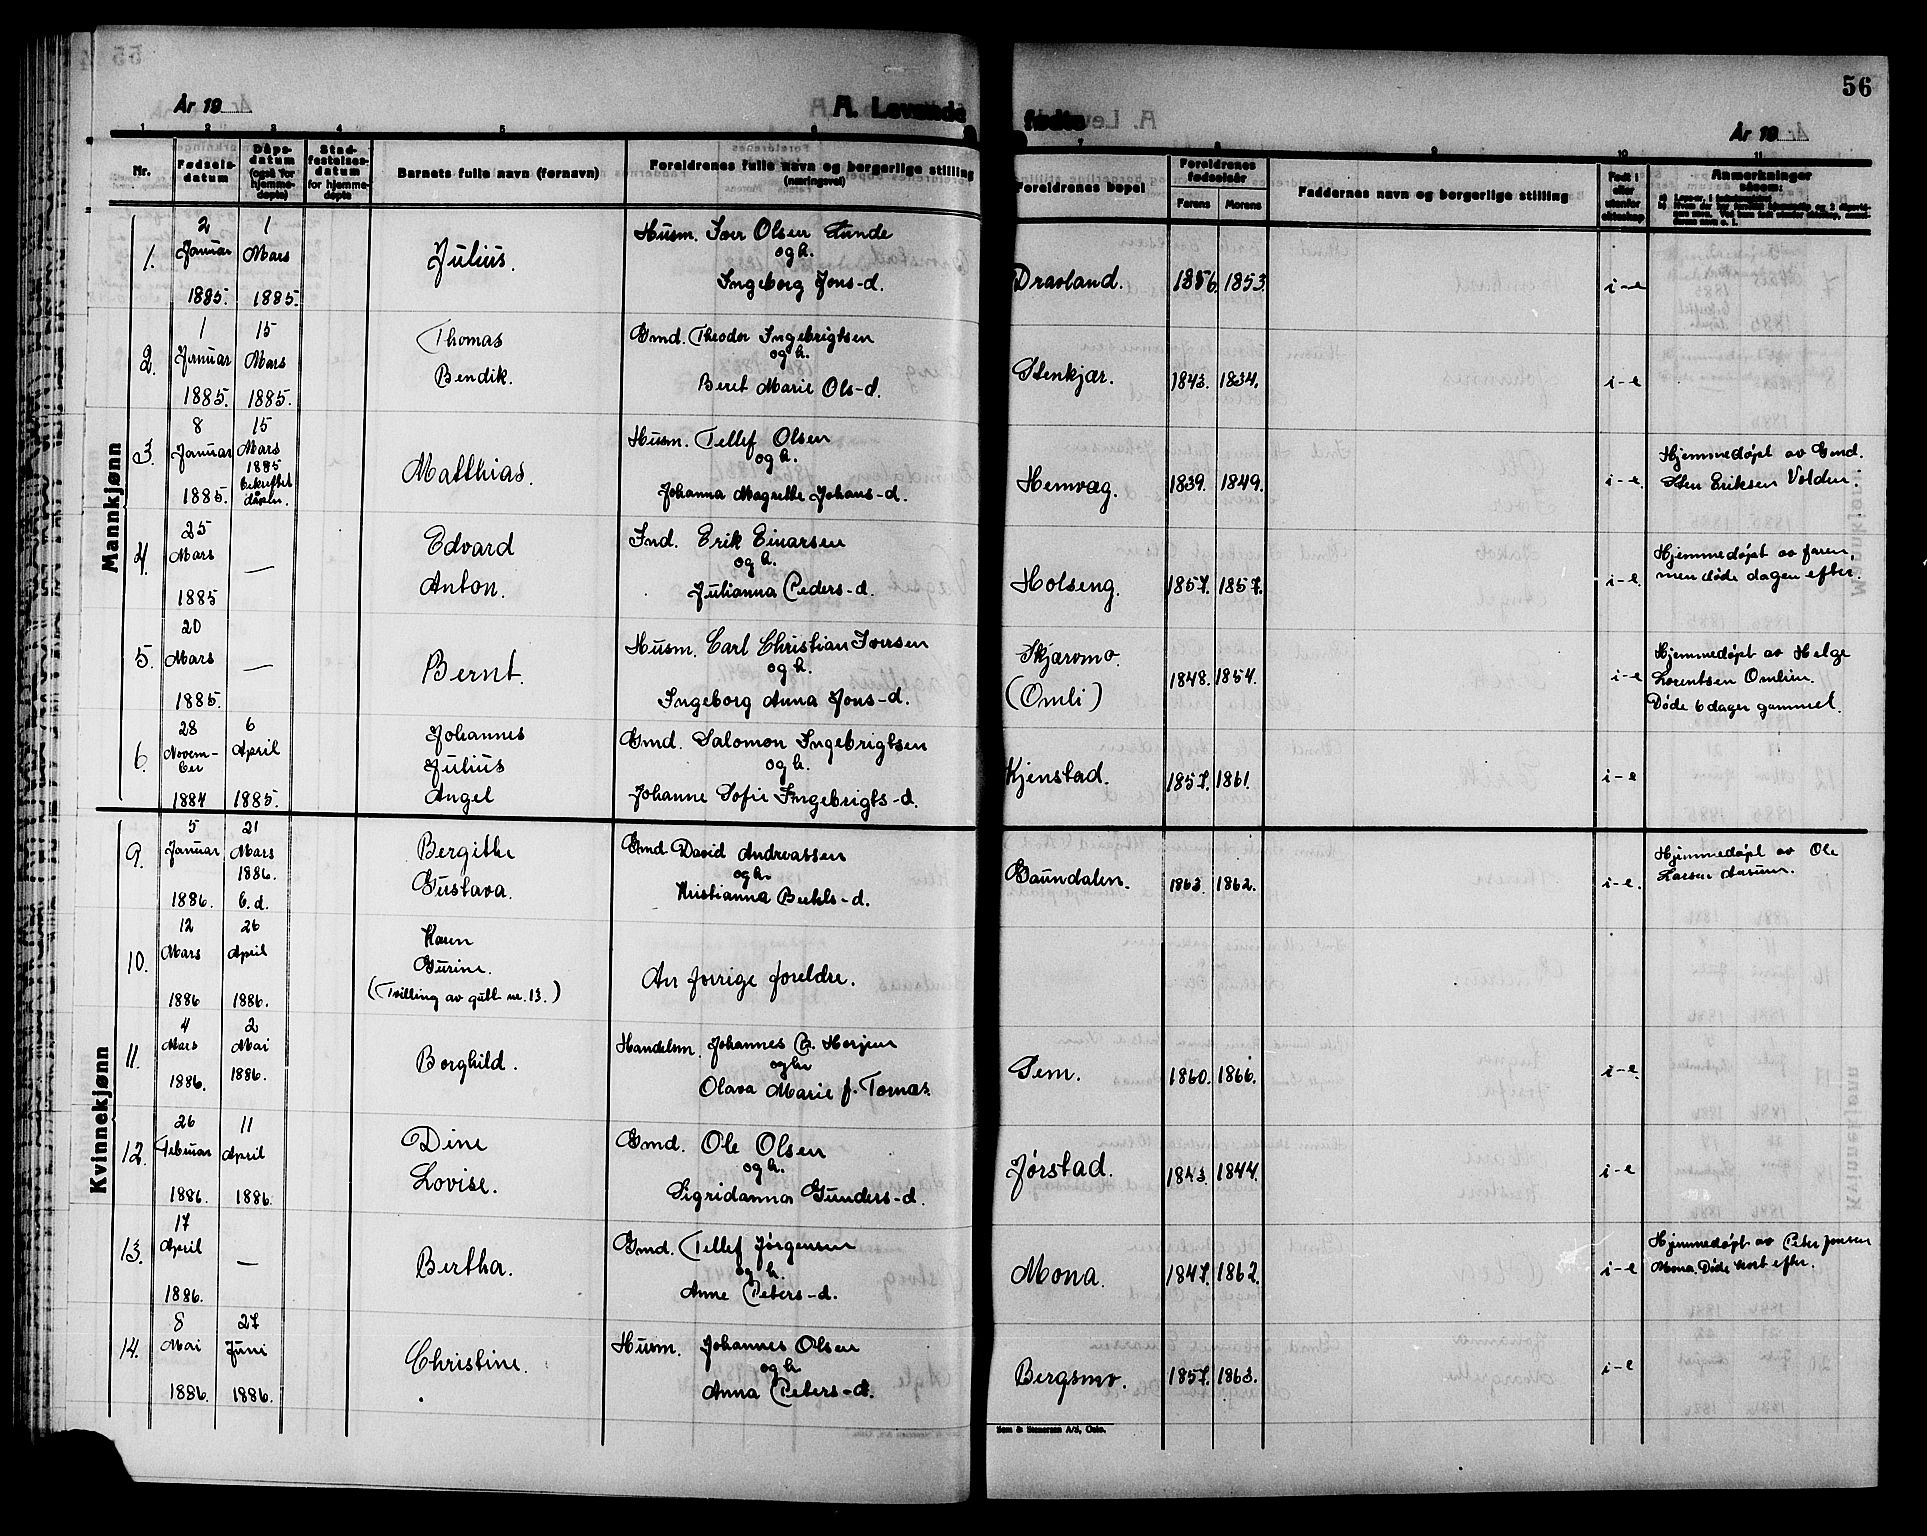 56
År 19
A. Levende
fødte
År 19
1 2 3 4 5 6 7 8 9 10 11
Nr.
Fødsels-
datum
Dåps-
datum
(også for
hjemme-
døpte)
Stad-
festelses-
datum
for hjemme-
døpte
Barnets fulle navn (fornavn)
Foreldrenes fulle navn og borgerlige stilling
(næringsvei)
Foreldrenes bopel
Foreldrenes
fødselsår
Farens Morens
Faddernes navn og borgerlige stilling
Født i
eller
utenfor
ekteskap
Anmerkninger
såsom:
Mannkjønn
1. 2 Januar 1885. 1 Mars 1885. Julius. Husm. Iver Olsen Lunde
og h.
Ingeborg Jons-d. Dravland. 1856. 1853. i-e
2. 1 Januar 1885. 15 Mars 1885. Thomas
Bendik. Gmd. Theodor Ingebrigtsen
og h.
Beret Marie Ols-d. Stenkjær. 1843. 1834. i-e
3. 8 Januar 1885. 15 Mars 1885 bekreftet dåpen. Matthias. Husm. Tellef Olsen
og h.
Johanna Magrethe Johans-d. Hemvæg. 1839. 1849. i-e. Hjemmedøpt av Gmd.
Sten Eriksen Volden.
4. 25 Mars 1885 — Edvard
Anton. Ind. Erik Einarsen
og h.
Julianna Peders-d. Holseng. 1857. 1857. i-e. Hjemmedøpt av faren,
men døde dagen efter.
5. 20 Mars 1885. — Bernt. Husm. Carl Christian Iversen
og h.
Ingeborg Anna Jons-d. Skjærmo.
(Omli) 1848. 1854. i-e Hjemmedøpt av Helge
Lorentsen Omlien.
Døde 6 dager gammel.
6. 28 Novem-
ber 1884 6 April 1885. Johannes
Julius
Angel Gmd. Salomon Ingebrigtsen
og h.
Johanne Sofie Ingebrigts-d. Kjenstad. 1857. 1861. i-e
Kvinnekjønn
9. 5 Januar 1886. 21 Mars 1886. b.d. Bergithe
Gustava. Gmd. David Andreassen
og h.
Kristianna Bertels-d. Gaundalen. 1863. 1862. i-e. Hjemmedøpt av Ole
Larsen
10. 12 Mars 1886 26 April 1886. Karen
Gurine.
(Tvilling av gutt nr. 13.) Av forrige foreldre.
11. 4 Mars 1886. 2 Mai 1886. Borghild. Handelsm. Johannes P. Horjem
og h.
Olava Marie f. Tornæs. Sem. 1860. 1866. i-e.
12. 26 Februar 1886. 11 April 1886. Dine
Lovise. Gmd. Ole Olsen
og h.
Sigridanna Gunders-d. Jørstad. 1843. 1844. i-e
13. 17 April 1886. — Bertha. Gmd. Tellef Jørgensen
og h.
Anne Peters-d. Mona. 1847. 1862. i-e Hjemmedøpt av Peter Jensen
Mona. Døde kort efter.
14. 8 Mai 1886. 27 Juni 1886. Christine. Husm. Johannes Olsen
og h.
Anna Peters-d. Bergsmo. 1857. 1863. i-e
Sem & Stenersen A/S, Oslo.